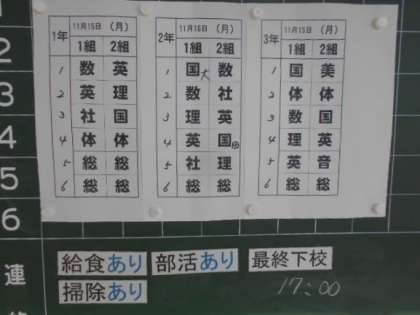 1年 11月15日 (月)
1組 2組
1 数 英
2 英 理
3 社 国
4 体 体
5 総 総
6 総 総
2年 11月15日 (月)
1組 2組
1 国 数
2 数 社
3 理 英
4 英 国
5 社 理
6 総 総
3年 11月15日 (月)
1組 2組
1 国 美
2 体 体
3 数 国
4 理 英
5 英 音
6 総 総
2
3
4
5
6
連
給食あり 部活あり 最終下校
掃除あり 17:00